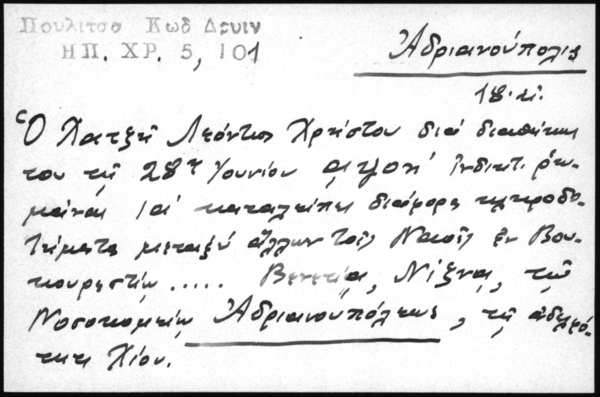 Πουλιτσα Κωδ Δρυιν
ΗΠ. ΧΡ. 5, 101
Ἀδριανούπολις
18.αἰ.
Ὁ Χατζῆ Λεόντιος Χρήστου διά διαθήκης
του τῇ 28ῃ Ἰουνίου αψοη' Ἰνδικτ.
καταλείπει διάφορα κληροδο-
τήματα μεταξύ ἄλλων τοῖς Ναοῖς ἐν Βου-
κουρεστίῳ ..... Βενετίας, Νίζνας, τῷ
Νοσοκομείῳ Ἀδριανουπόλεως, τῇ ἀδελφό-
τητι Χίου.